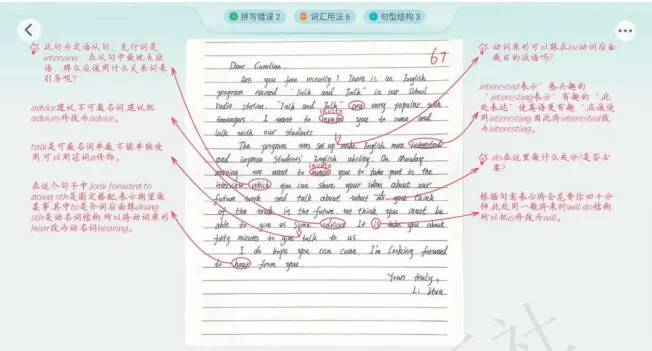 拼写错误 2 词汇用法 6 句型结构 3
此句为定语从句，先行词是
interview，在从句中做地点状
语，那么应该用什么关系词来
引导呢？
advice建议，不可数名词，建议把
advices修改为advice。
talk是可数名词单数，不能单独使
用，可以用冠词a修饰。
在这个句子中，look forward to
doing sth是固定搭配，表示期望做
某事，其中to是介词，后面跟doing
sth是动名词结构，所以将动词原形
hear改为动名词hearing。
67
Dear Caroline.
Are you free recently? There is an English
program named "Talk and Talk" in our school
radio station. "Talk and Talk" are very popular with
teenagers. I want to invate you to come and
invite
talk with our students.
The program was set up make English more interested
and improve students' English ability. On Monday
morning we want to invate you to take part in the
invite
interview which you can share your ideas about our
future work and talk about what do you think
of the work in the future. We think you must be
able to give us some advices. It is take you about
forty minutes to give talk to us.
I do hope you can come. I'm looking forward
to hear from you.
Yours truly,
Li Hua
动词原形可以跟在be动词后面
做目的状语吗？
interested表示"感兴趣的
"interesting表示"有趣的"，此
处表达"使英语更有趣"，应该使
用interesting，因此将interested改
为interesting。
do在这里做什么成分？是否必
要？
根据句意表示将会花费你四十分
钟，此处用一般将来时will do结构，
所以把is修改为will。